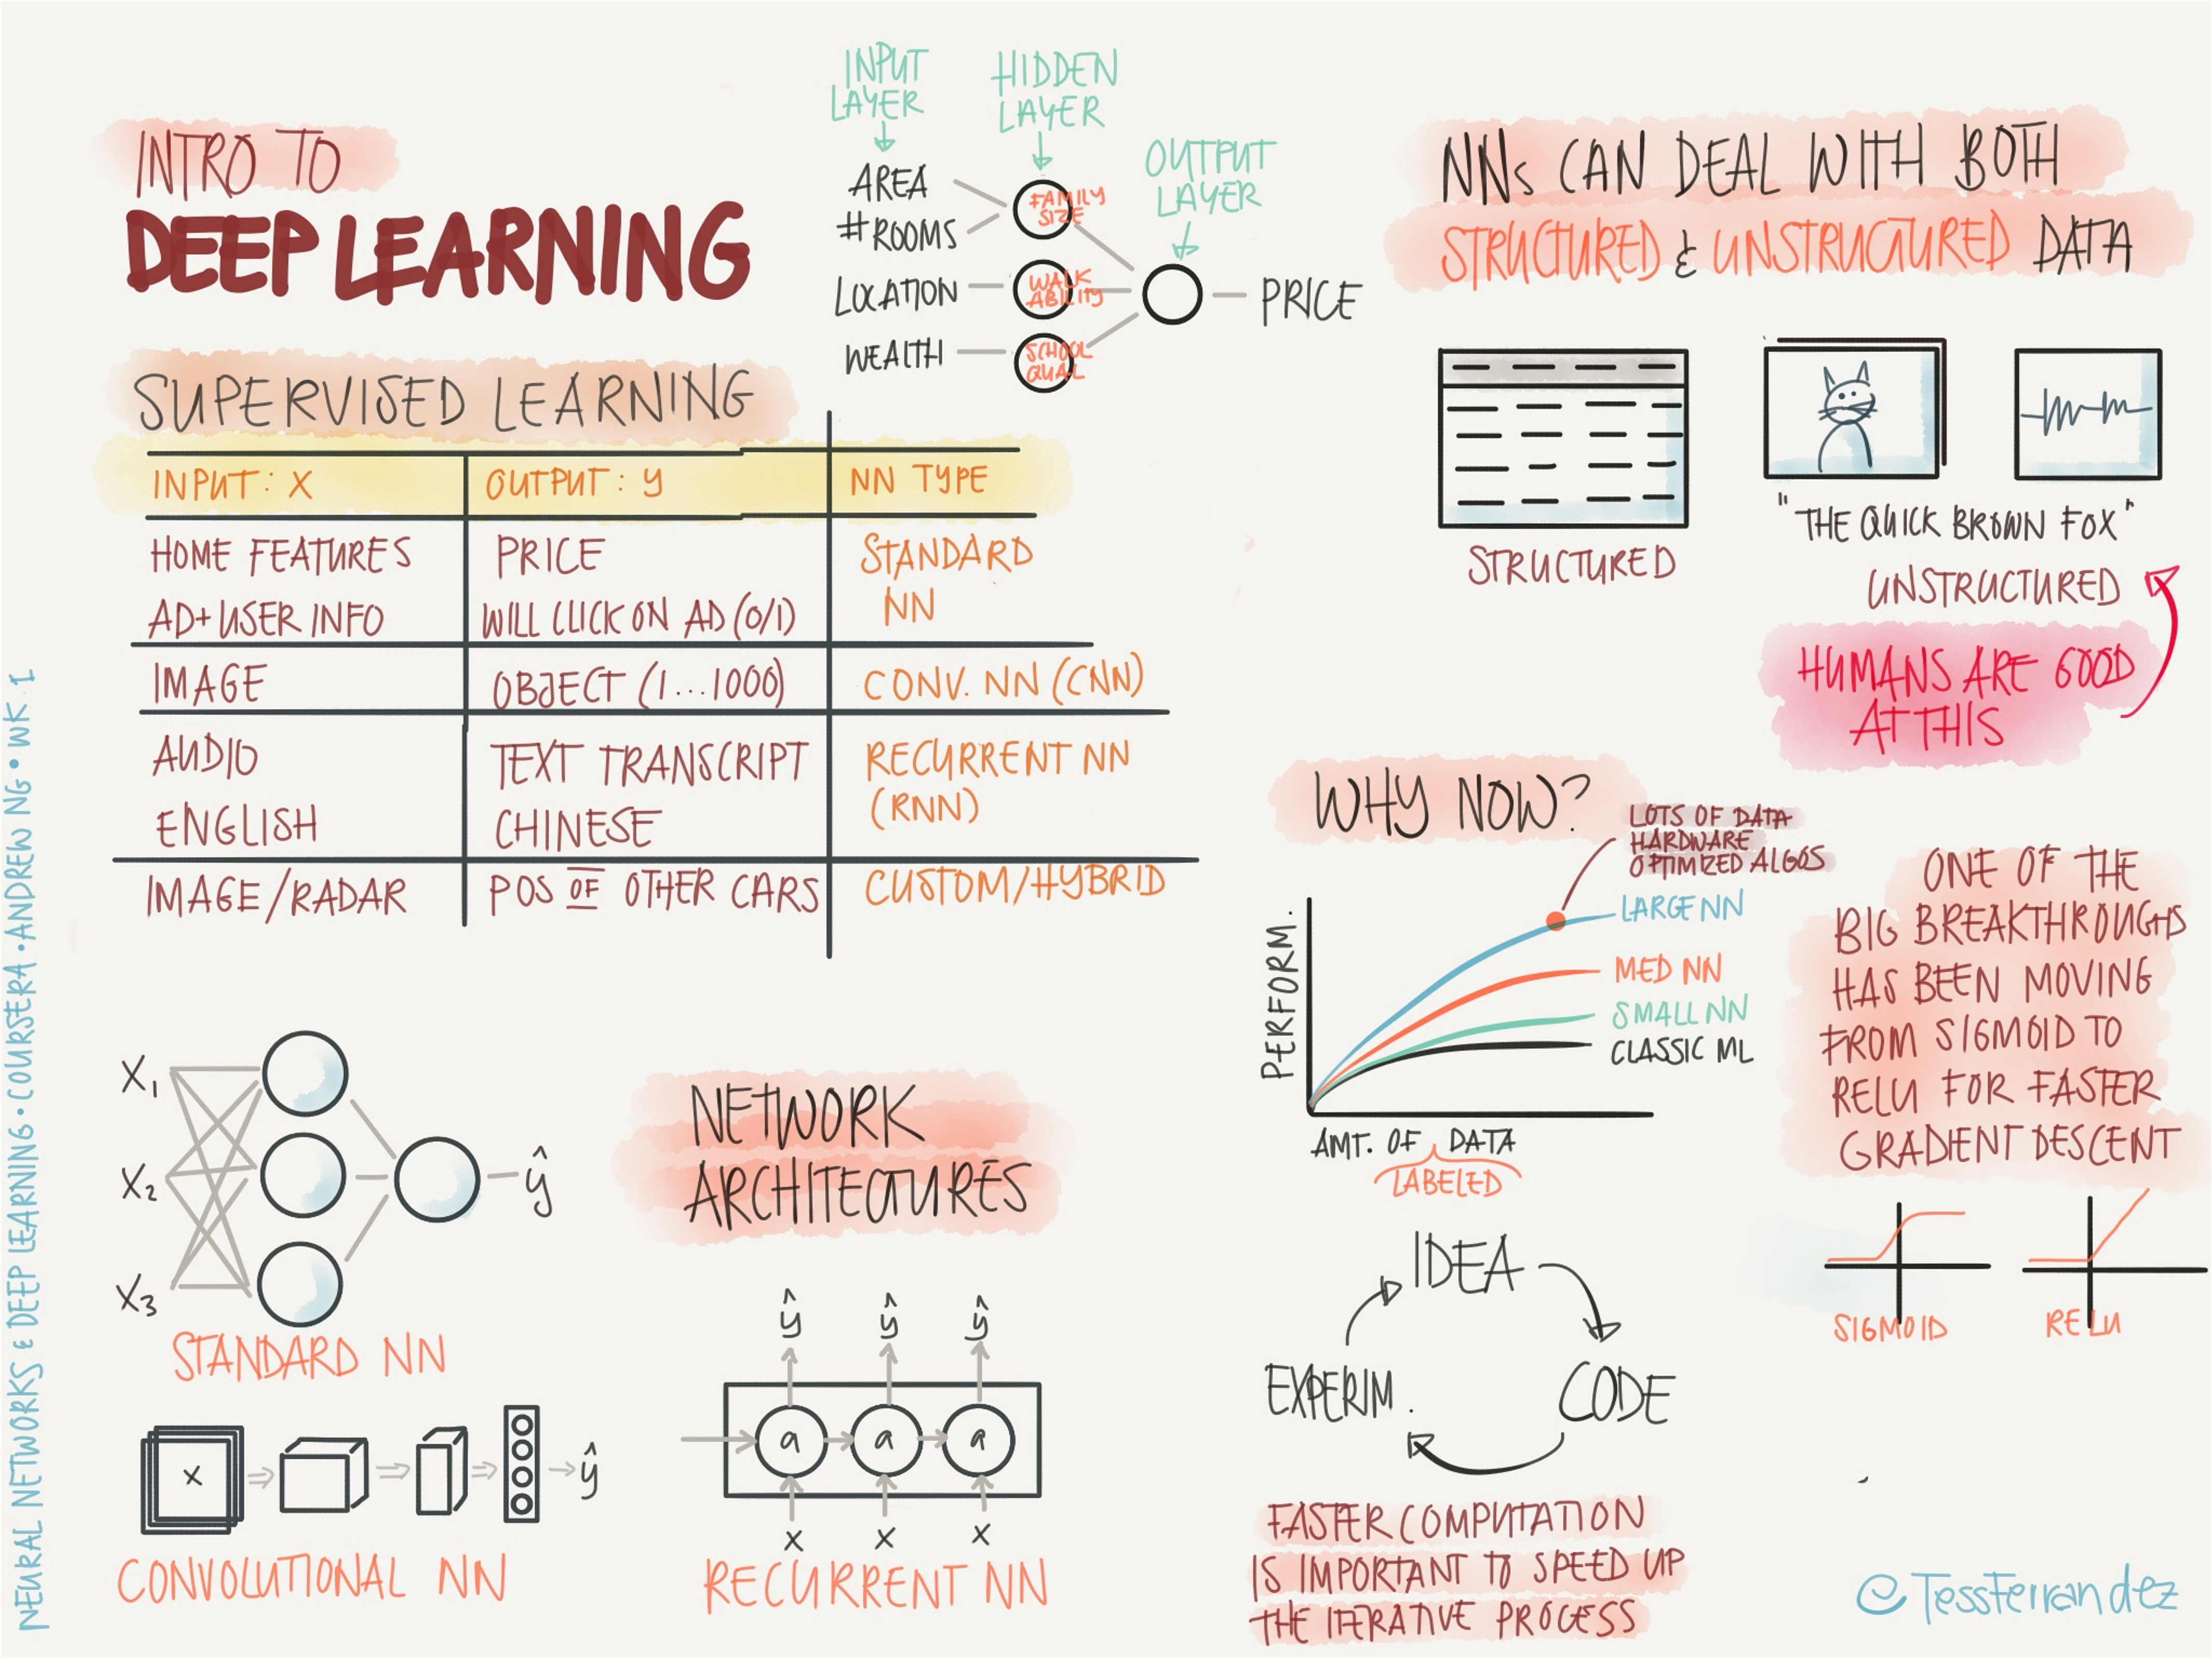 INTRO TO
DEEP LEARNING
INPUT
LAYER
HIDDEN
LAYER
OUTPUT
LAYER
AREA
#ROOMS
LOCATION
WEALTH
FAMILY
SIZE
WALK
ABILITY
SCHOOL
QUAL
PRICE
SUPERVISED LEARNING
INPUT: X OUTPUT: y NN TYPE
HOME FEATURES PRICE STANDARD
AD+USER INFO WILL CLICK ON AD (0/1) NN
IMAGE OBJECT (1...1000) CONV. NN (CNN)
AUDIO TEXT TRANSCRIPT RECURRENT NN
ENGLISH CHINESE (RNN)
IMAGE/RADAR POS OF OTHER CARS CUSTOM/HYBRID
NNs CAN DEAL WITH BOTH
STRUCTURED & UNSTRUCTURED DATA
STRUCTURED
"THE QUICK BROWN FOX"
UNSTRUCTURED
HUMANS ARE GOOD
AT THIS
WHY NOW?
LOTS OF DATA
HARDWARE
OPTIMIZED ALGOS
LARGE NN
MED NN
SMALL NN
CLASSIC ML
PERFORM.
AMT. OF DATA
LABELED
ONE OF THE
BIG BREAKTHROUGHS
HAS BEEN MOVING
FROM SIGMOID TO
RELU FOR FASTER
GRADIENT DESCENT
SIGMOID
RELU
IDEA
CODE
EXPERIM.
FASTER COMPUTATION
IS IMPORTANT TO SPEED UP
THE ITERATIVE PROCESS
NETWORK
ARCHITECTURES
X1
X2
X3
ŷ
STANDARD NN
X
ŷ
CONVOLUTIONAL NN
ŷ ŷ ŷ
a a a
X X X
RECURRENT NN
NEURAL NETWORKS & DEEP LEARNING • COURSERA • ANDREW NG • WK. 1
@TessFerrandez